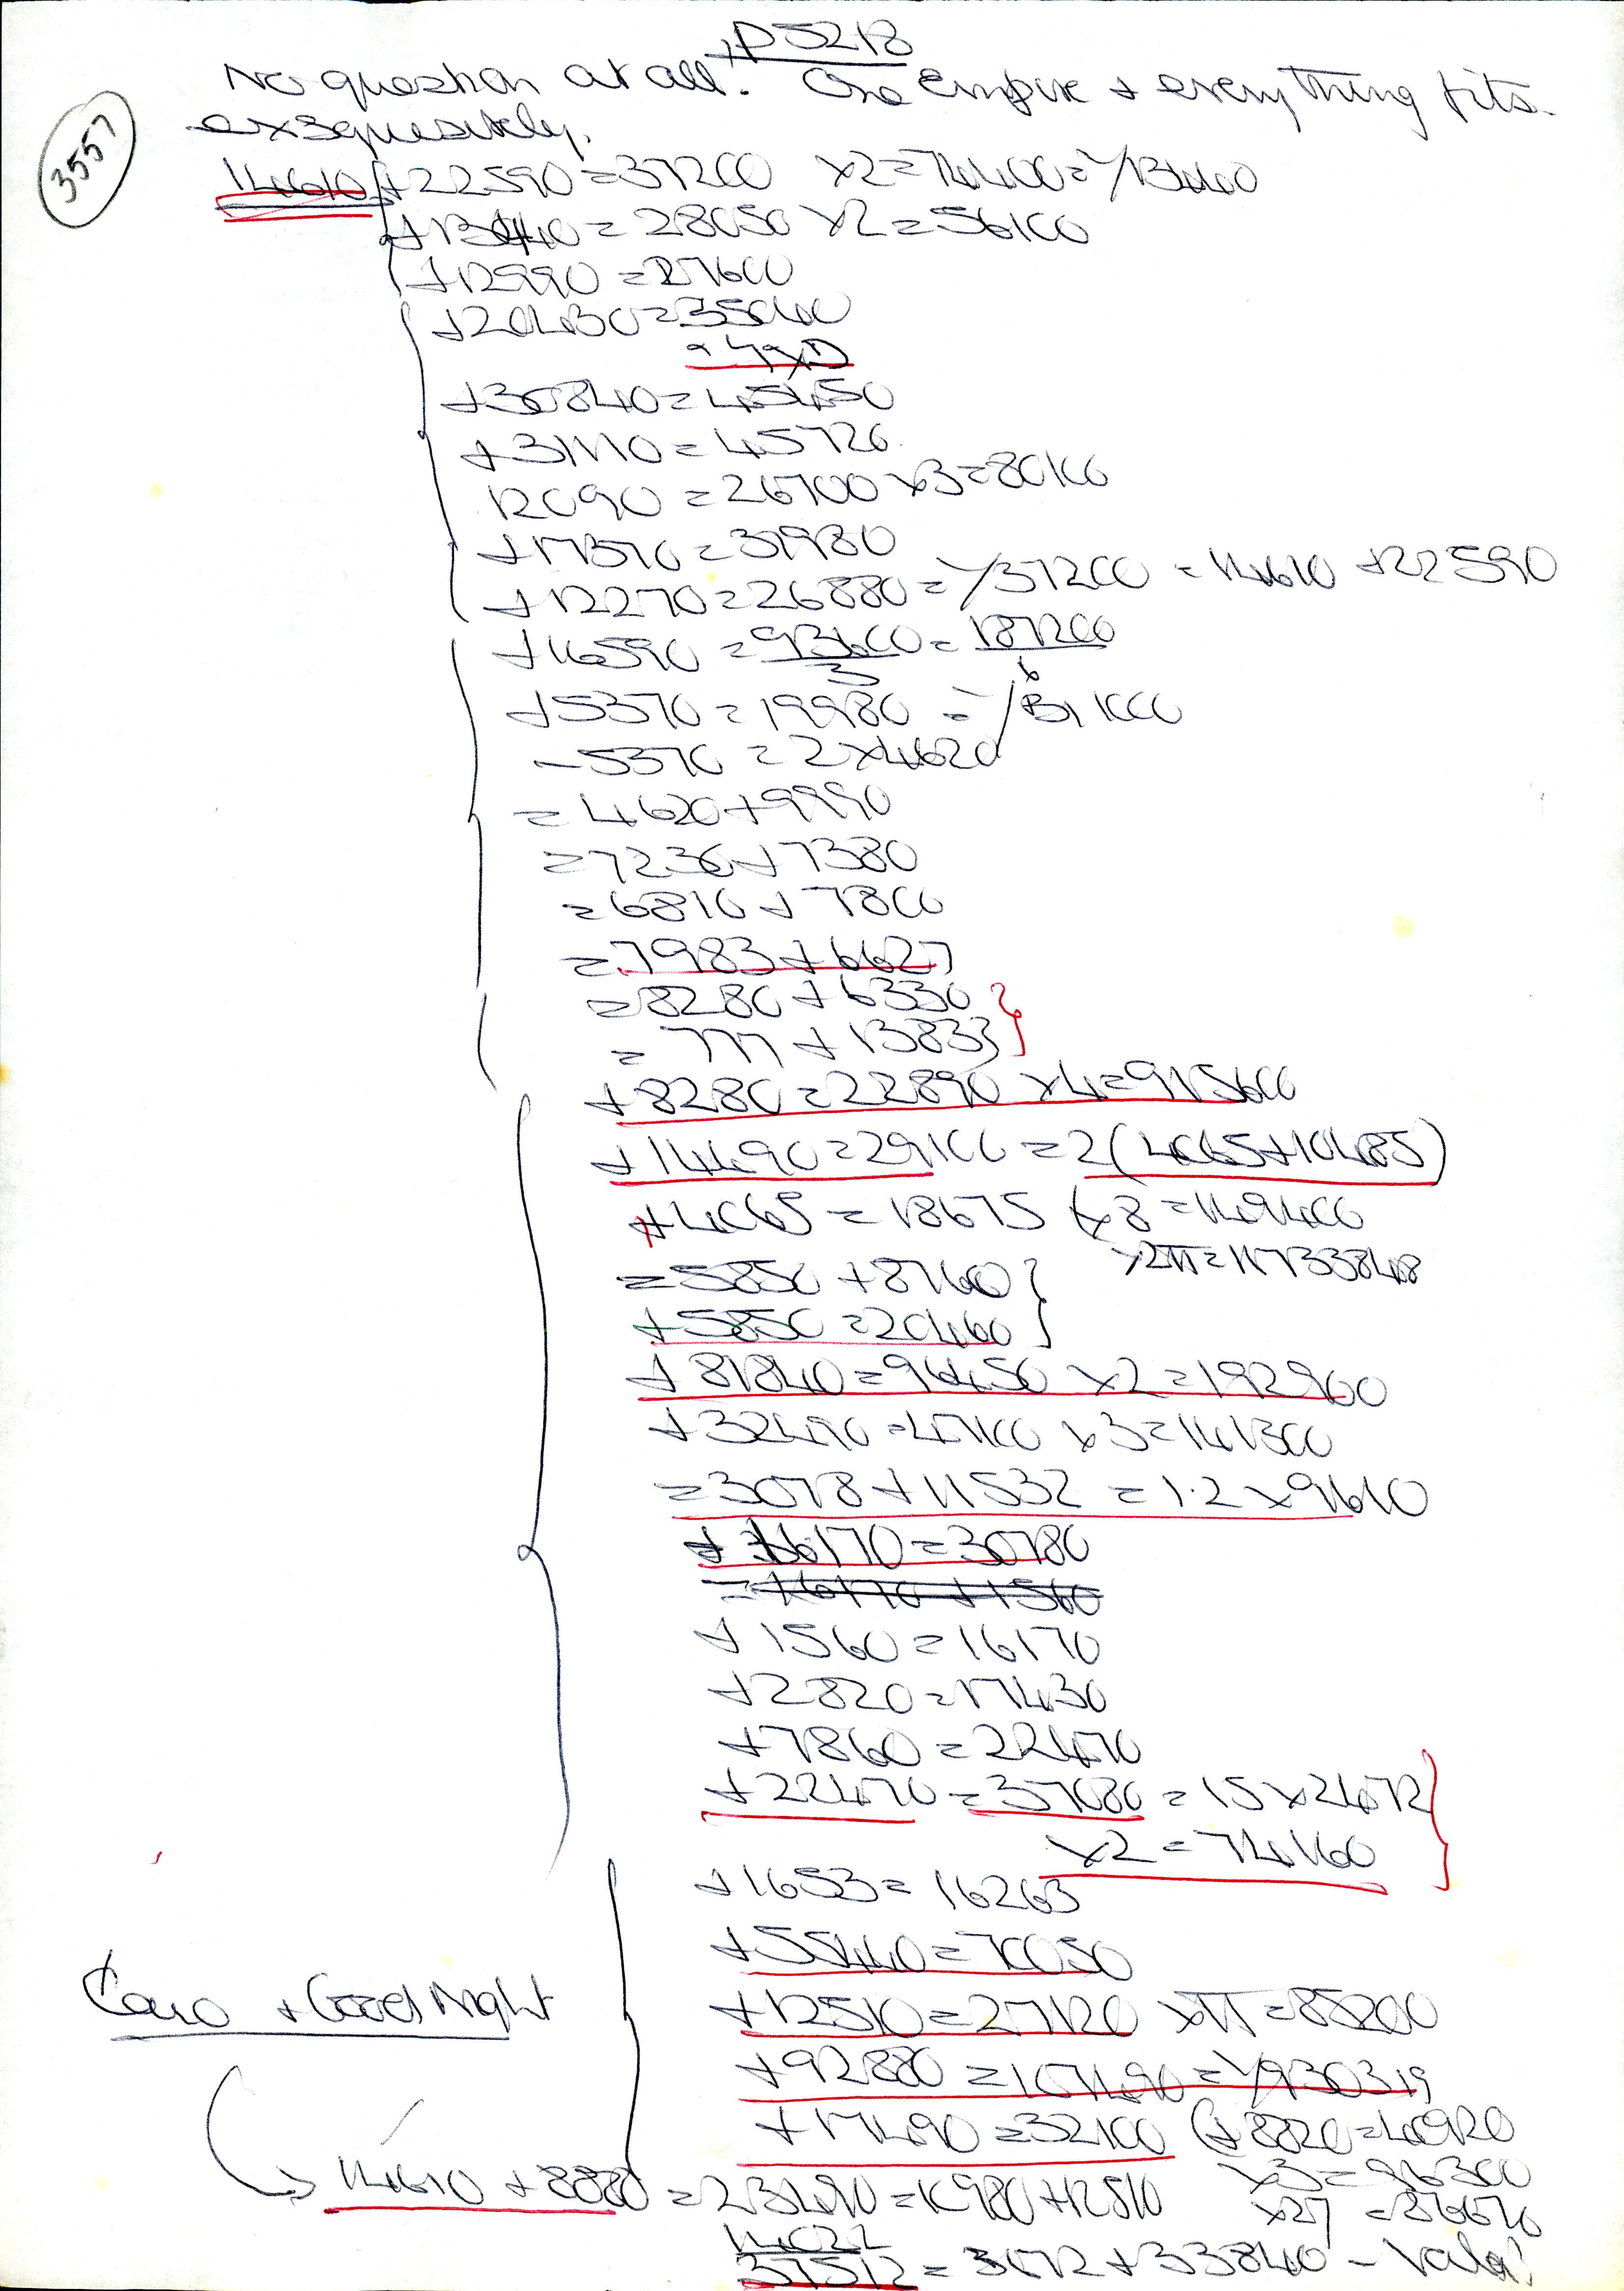 D5218
No question at all! One Empire + everything fits
exsquesitely.
3557
14610 +22590=37200 x2=74400=1/13440
+13440=28050 x2=56100
+12990=27600
+20430=35040
+30840=45450
+31110=45720
12090=26700 x3=80100
+17370=31980
+12270=26880=1/37200=14610+22590
+16590=93600/3=187200/6
+5370=19980
-5370=2x4620
=4620+9990
=7230+7380
=6810+7800
=7983+6627
=8280+6330
=777+13833
+8280=22890 x4=91560
+14490=29100=2(4065+10485)
+4065=18675 (x8=149400
x2π=117338.48
=5850+8760
+5850=20460
+81840=96450 x2=192900
+32490=47100 x3=141300
=3078+11532=1.2x9610
+16170=30780
=16170+1560
+1560=16170
+2820=17430
+7860=22470
+22470=37080=15x2472
x2=74160
+1653=16263
+55440=70050
+12510=27120 xπ=85200
+92880=107490=1/930319
+17490=32100 (+8820=40920
x3=96300
Ciao + Good Night
14610+8880=23490=10980+12510
37512=3672+33840 - Voila!